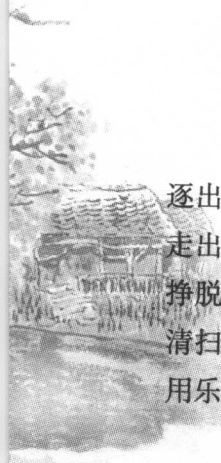 逐出
走出
挣脱
清扫
用乐